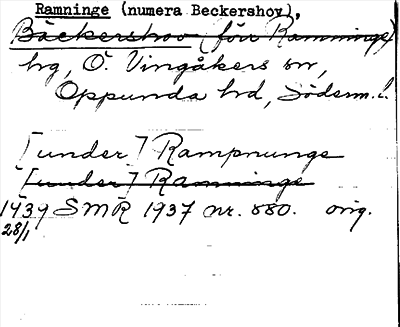 Ramninge (numera Beckershov),
Bäckershov (förr Ramninge)
hg, Ö. Vingåkers sn,
Oppunda hd, Söderm. l.
[under] Rampnunge
[under] Ramninge
1439 SMR 1937 nr. 880. orig.
28/1